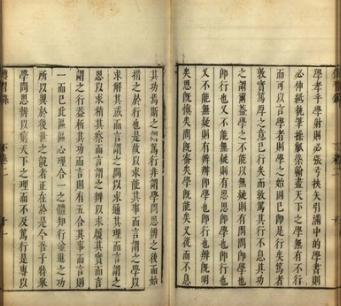 學孝乎學射則必張弓挾矢引滿中的學書則
必伸紙執筆操觚染翰盡天下之學無有不行
而可以言學者則學之始固已即是行矣篤者
敦實篤厚之意已行矣而敦篤其行不息其功
之謂爾蓋學之不能以無疑則有問問即學也
即行也又不能無疑則有思思即學也即行也
又不能無疑則有辨辨即學也即行也辨既明
矣思既慎矣問既審矣學既能矣又從而不息
其功焉斯之謂篤行非謂學問思辨之後而始
措之於行也是故以能其事而言謂之學以
求解其惑而言謂之問以求通其理而言謂之
思以求精其察而言謂之辨以求履其實而言
謂之行蓋析其功而言則有五合其事而言則
一而已此區區心理合一之體知行並進之功
所以異於後世之說者正在於是今吾子特舉
學問思辨以窮天下之理而不及篤行是專以
傳習錄